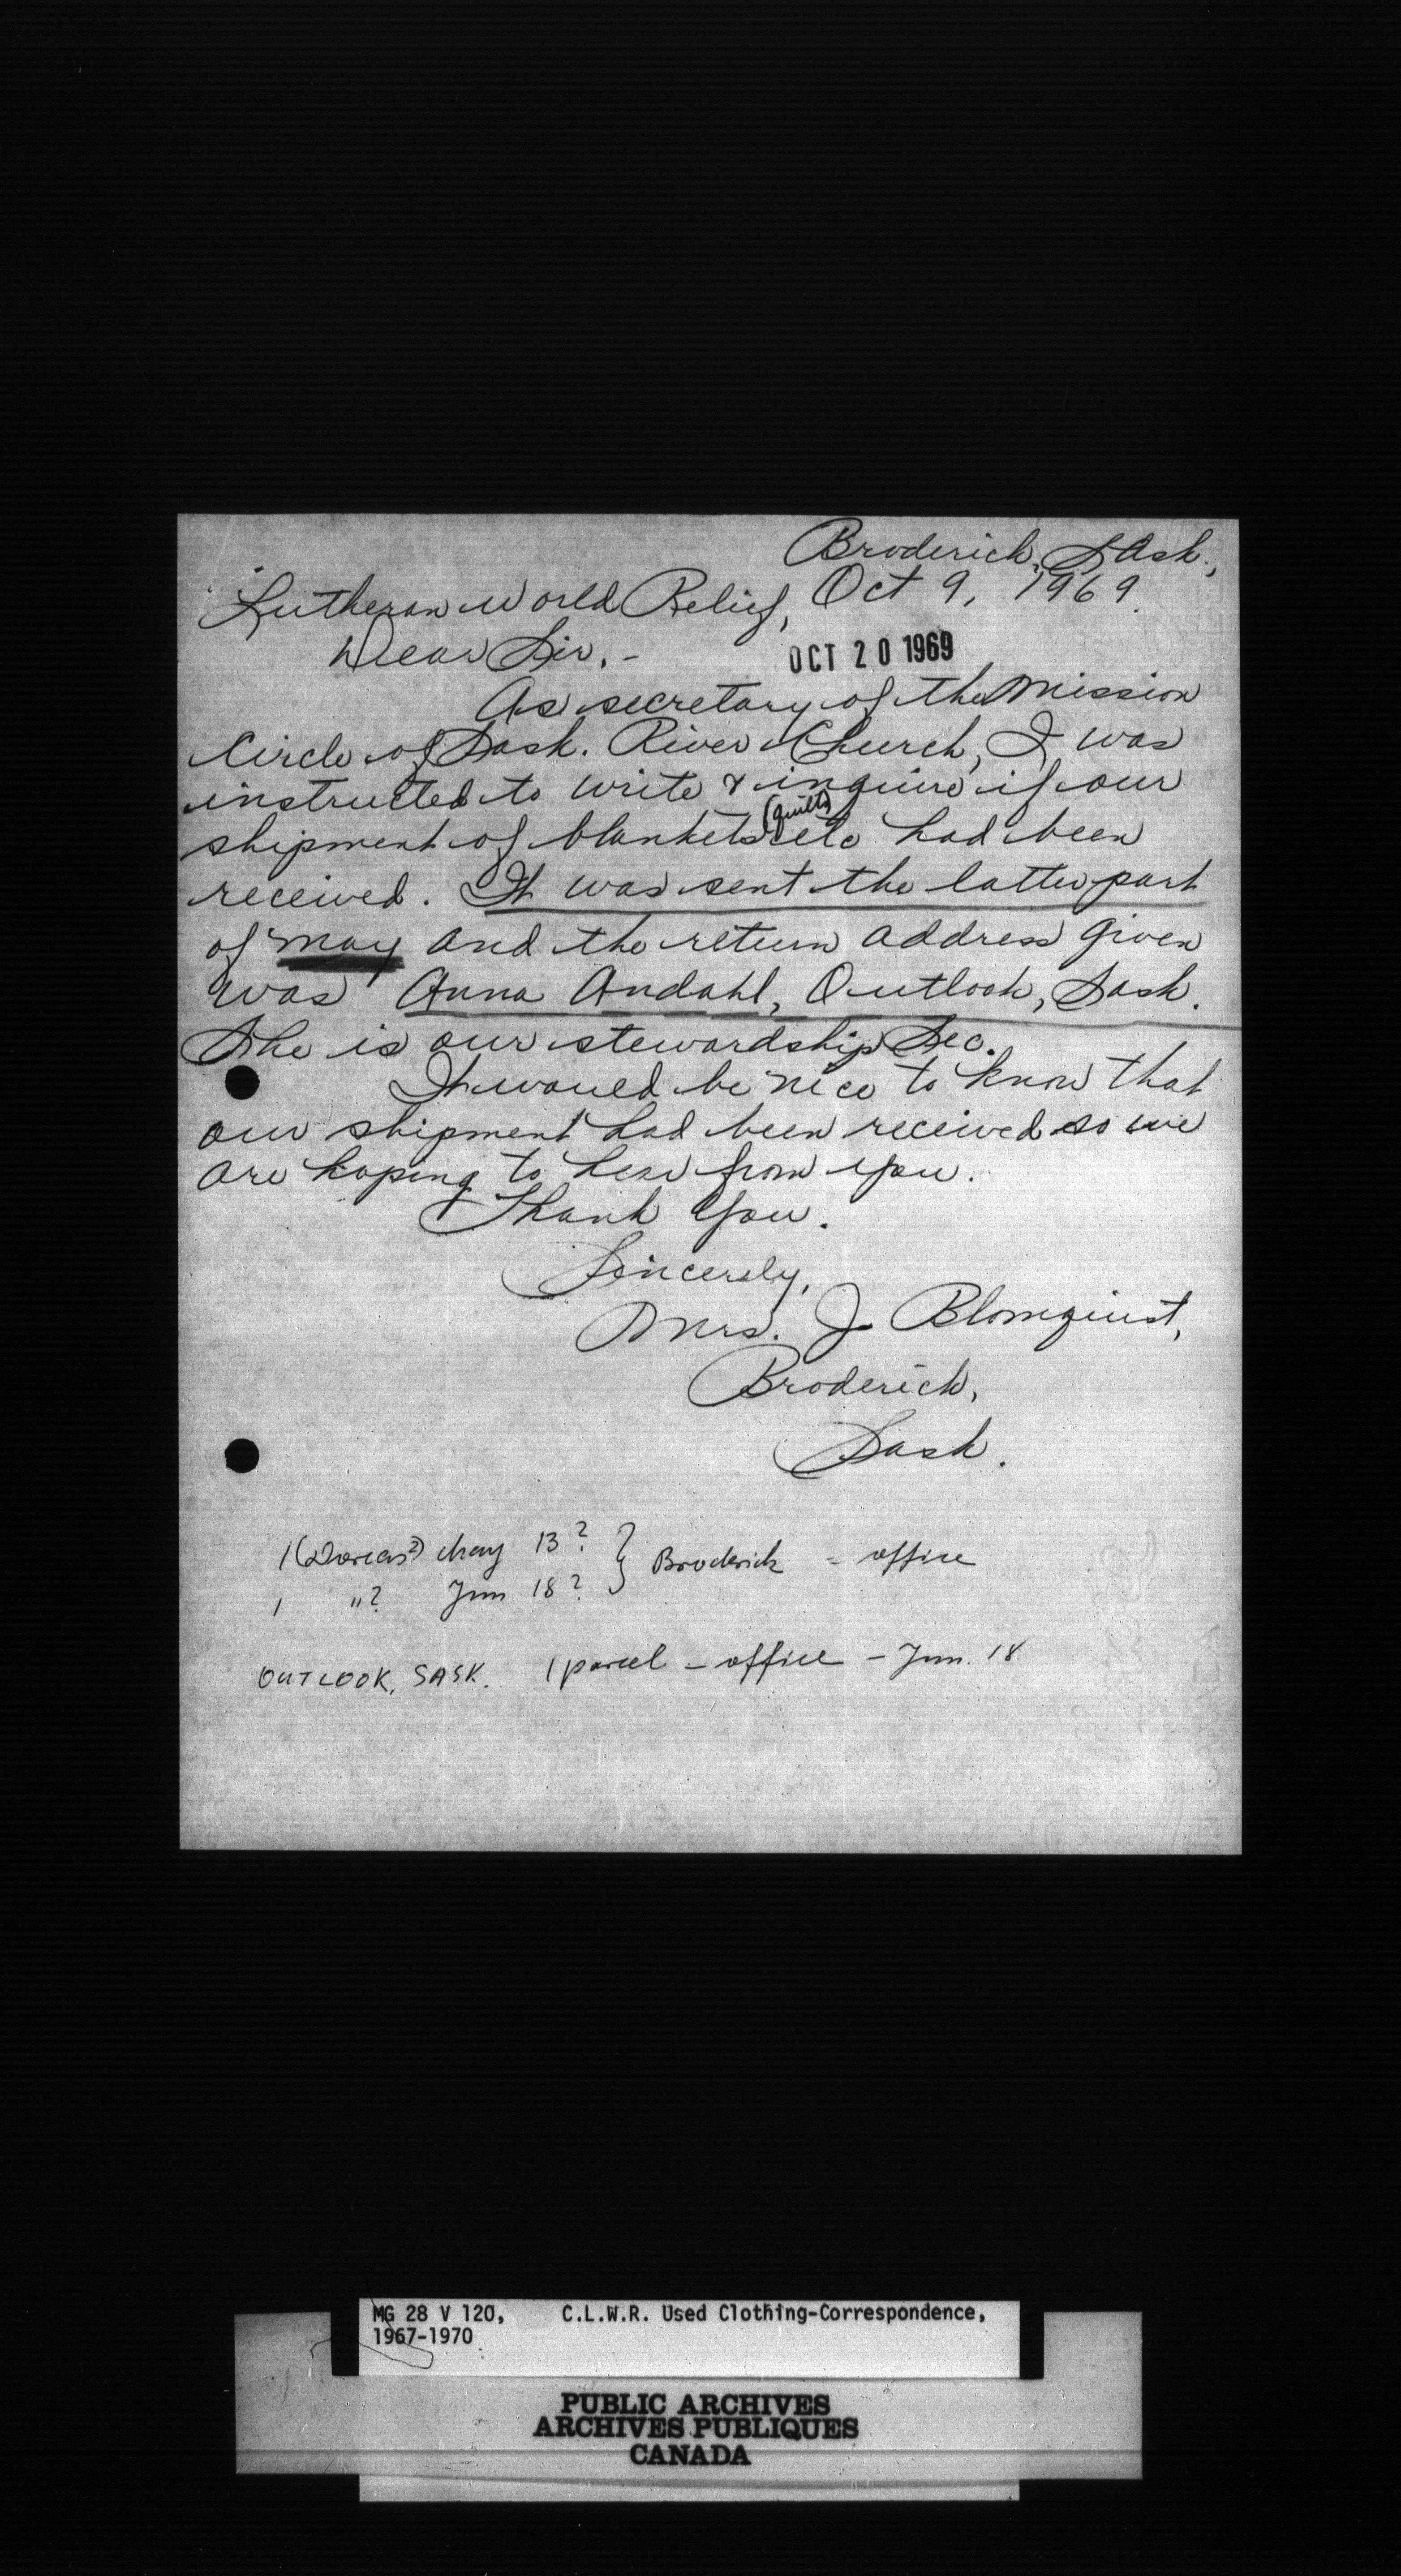 Broderick, Sask.,
Lutheran World Relief, Oct 9, 1969.
Dear Sir, -
OCT 20 1969
As secretary of the Mission
Circle of Sask. River Church, I was
instructed to write & inquire if our
shipment of blankets (quilts) etc had been
received. It was sent the latter part
of May and the return address given
was Anna Andahl, Outlook, Sask.
She is our stewardship Sec.
It would be nice to know that
our shipment had been received so we
are hoping to hear from you.
Thank You.
Sincerely,
Mrs. J. Blomquist,
Broderick,
Sask.
1 (Dorcas?) May 13? } Broderick - office
1 "? Jun 18?
OUTLOOK, SASK. 1 parcel - office - Jun. 18
MG 28 V 120, C.L.W.R. Used Clothing-Correspondence,
1967-1970
PUBLIC ARCHIVES
ARCHIVES PUBLIQUES
CANADA